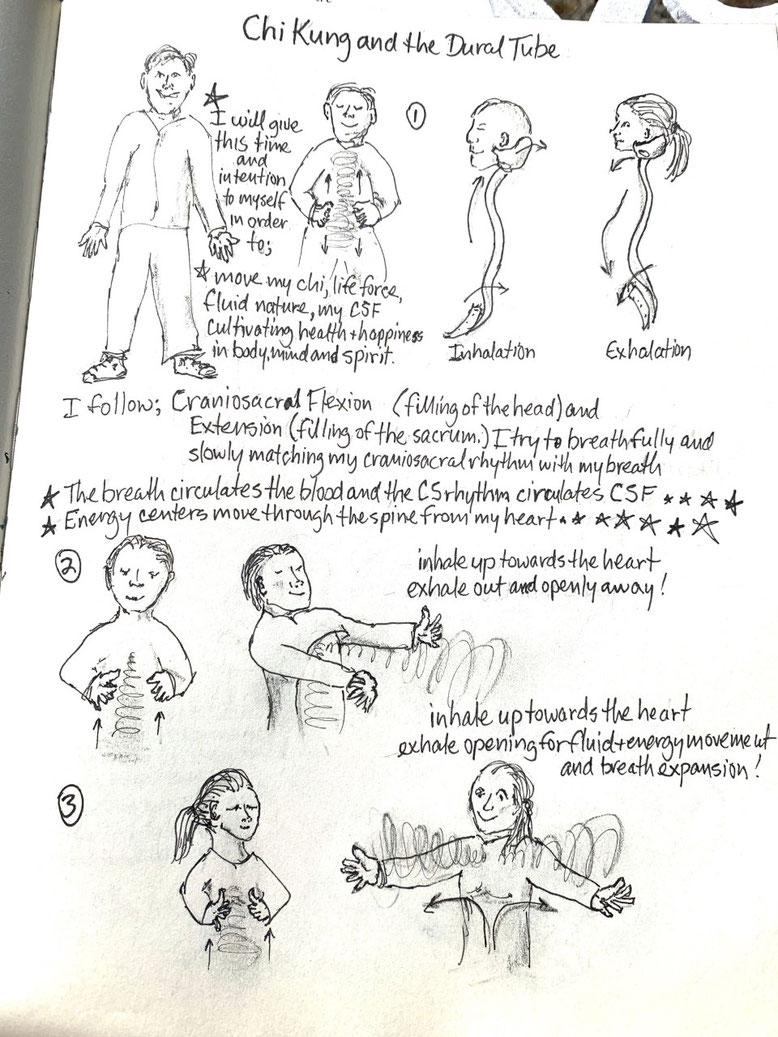 Chi Kung and the Dural Tube
☆ I will give
this time
and
intention
to myself
in order
to;
☆ move my chi, life force,
fluid nature, my CSF
cultivating health + happiness
in body, mind and spirit.
①
Inhalation
Exhalation
I follow; Craniosacral Flexion (filling of the head) and
Extension (filling of the sacrum.) I try to breath fully and
slowly matching my craniosacral rhythm with my breath
☆ The breath circulates the blood and the CS rhythm circulates CSF ☆☆☆☆
☆ Energy centers move through the spine from my heart. ☆☆☆☆☆☆
②
inhale up towards the heart
exhale out and openly away!
inhale up towards the heart
exhale opening for fluid + energy movement
and breath expansion!
③